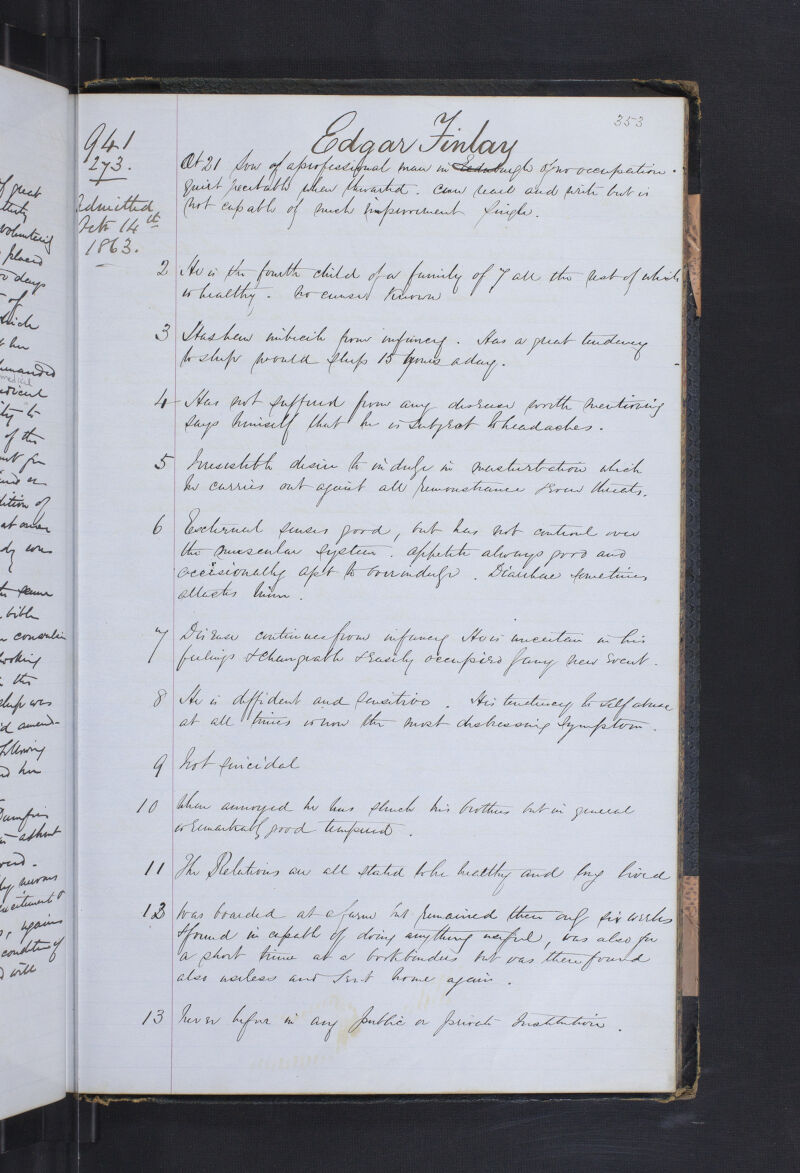 353
Edgar Finlay
941
273.
Admitted
Feb 14th
1863.
At 21 Son of a professional man in Edinburgh of no occupation.
Quiet irritable when thwarted. Can read and write but is
not capable of much improvement Single.
2 He is the fourth child of a family of 7 all the rest of which
is healthy. No cause known
3 Has been imbecile from infancy. Has a great tendency
to sleep would sleep 15 hours a day.
4 Has not suffered from any disease worth mentioning
says himself that he is subject to headaches.
5 Irresistible desire to indulge in masturbation which
he carries out against all remonstrance & even threats.
6 External senses good, but has not control over
the muscular system. appetite always good and
occasionally apt to overindulge. Diarrhae sometimes
attacks him.
7 Disease continues from infancy He is uncertain in his
feelings & changeable & easily occupied by any new event.
8 He is diffident and sensitive. His tendency to self abuse
at all times is now the most distressing symptom.
9 Not suicidal
10 When annoyed he has struck his brothers but in general
is remarkably good tempered.
11 The Relations are all stated to be healthy and long lived
12 Was boarded at a farm but remained there only six weeks
& found incapable of doing anything useful, was also for
a short time at a bookbinders but was there found
also useless and sent home again.
13 Never before in any public or private Institution.